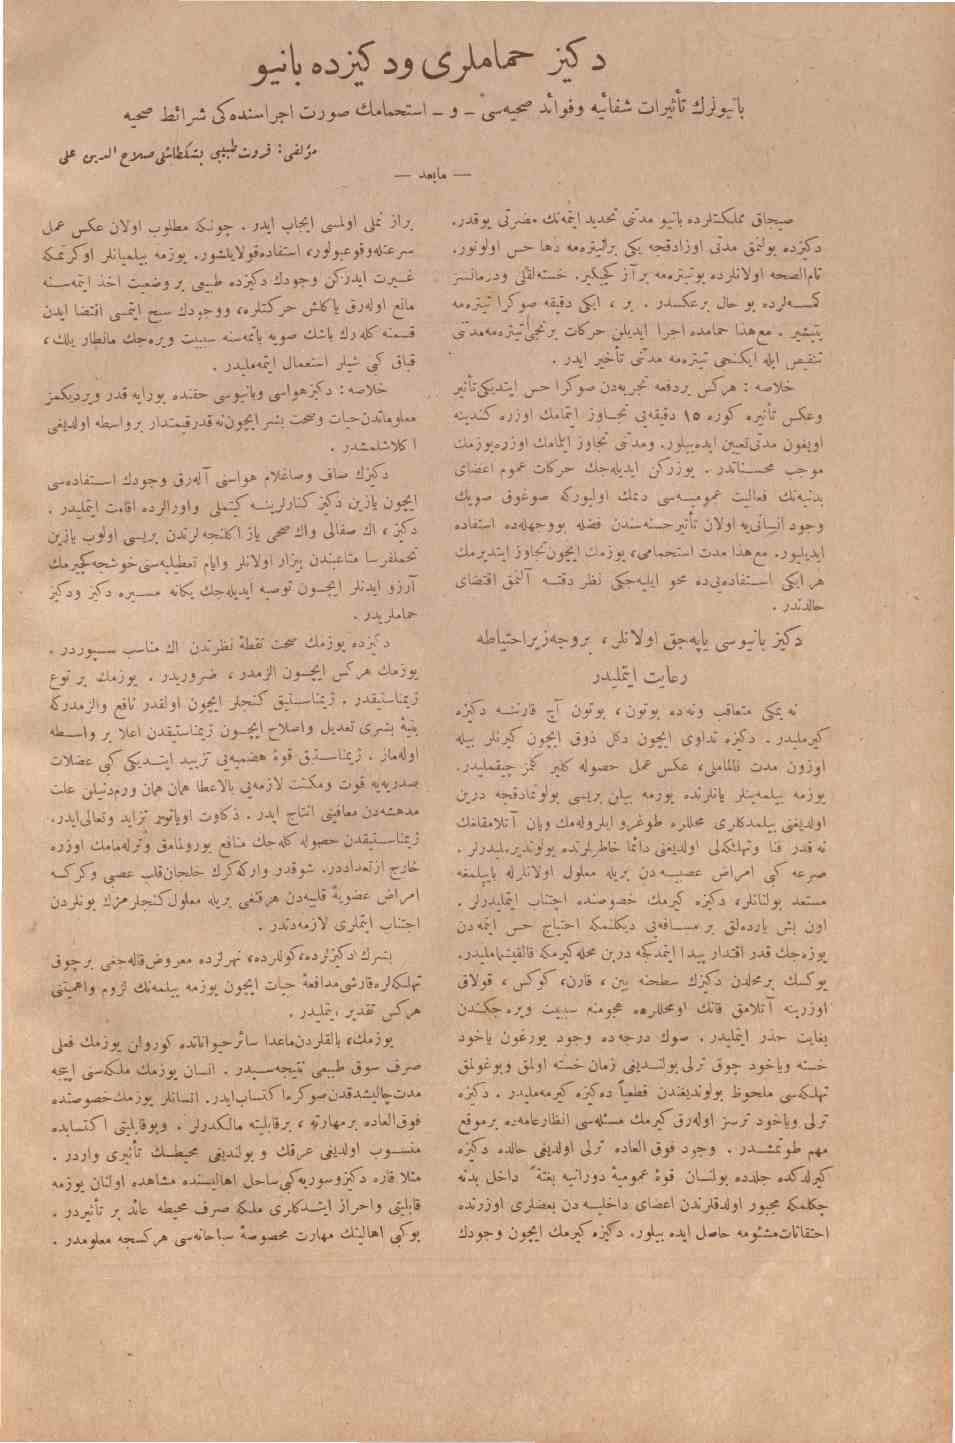 دكيز حماملری ودكيزده بانيو
بانيولرك تأثيرات شفائيه وفوائد صحيه‌سی ـ و ـ استحمامك صورت اجراسنده‌كی شرائط صحيه
مؤلفی: قروت طبيبی بشكطاشلی صلاح الدين علی
— مابعد —
صيجاق مملكتلرده بانيو مدتی تحديد ايتمه‌نك مضرتی يوقدر.
دكيزده بولنمق مدتی اوزادقجه يكی برتيتره‌مه دها حس اولونور.
تام‌الصحه اولانلرده بوتيتره‌مه برآز كجيكير. خسته‌لقلی ودرمانسز
كمسه‌لرده بو حال برعكسدر . بر ، ايكی دقيقه صوكرا تيتره‌مه
يتيشير . مع‌هذا حمامده اجرا ايديلن حركات برنجی تيتره‌مه مدتنی
تنقيص ايله ايكنجی تيتره‌مه مدتنی تأخير ايدر .
خلاصه : هركس بردفعه تجربه‌دن صوكرا حس ايتديكی تأثير
وعكس تأثيره كوره ١٥ دقيقه‌يی تجاوز ايتمامك اوزره كندينه
اويغون مدتی تعيين ايده‌بيلور. ومدتی تجاوز ايتمامك اوزره يوزمك
موجب محسناتدر . يوزركن ايديله‌جك حركات عموم اعضای
بدنيه‌نك فعاليت عموميه‌سی ديمك اوليوركه صوغوق صويك
وجود انسانی‌يه اولان تأثير حسنه‌سندن فضله بووجهله‌ده استفاده
ايديليور. مع‌هذا مدت استحمامی، يوزمك ايچون تجاوز ايتديرمك
هر ايكی استفاده‌يی‌ده محو ايليه‌جكی نظر دقته آلنمق اقتضای
حالدندر .
دكيز بانيوسی ياپه‌جق اولانلر ، بروجه‌زير احتياطه
رعايت ايتمليدر
نه يمكی متعاقب ونه‌ده بوتون ، بوتون آچ قارننه دكيزه
كيرمليدر. دكيزه تداوی ايچون دكل ذوق ايچون كيرنلر بيله
اوزون مدت قالماملی، عكس عمل حصوله كلير كلمز چيقمليدر.
يوزمه بيلمه‌ينلر يانلرنده يوزمه بيلن بريسی بولونمادقجه درين
اولديغنی بيلمدكلری محللره طوغرو ايلروله‌مك وبان آتلامقلغك
نه قدر فنا وتهلكه‌لی اولديغنی دائما خاطرلرنده بولونديرمليدرلر .
صرعه كبی امراض عصبيه‌دن بريله معلول اولانلرله بايلمغه
مستعد بولنانلر، دكيزه كيرمك خصوصنده اجتناب ايتمليدرلر .
اون بش يارده‌لق بر مسافه‌يی ديكلنمكه احتياج حس ايتمه‌دن
يوزه‌جك قدر اقتدار پيدا ايتمدكجه درين محله كيرمكه قالقيشماملی‌در.
يوكسك برمحلدن دكيزك سطحنه بين ، قارن، كوكس ، قولاق
اوزرينه آتلامق قانك اومحللره هجومنه سببيت ويره‌جكندن
بغايت حذر ايتمليدر . صوك درجه‌ده وجود يورغون ياخود
خسته وياخود چوق ترلی بولنديغی زمان خسته اولمق وبوغولمق
تهلكه‌سی ملحوظ بولونديغندن قطعياً دكيزه كيرمه‌مليدر . دكيزه
ترلی وياخود ترسز اوله‌رق كيرمك مسئله‌سی انظار عامه‌ده برموقع
مهم طوتمشدر . وجود فوق العاده ترلی اولديغی حالده دكيزه
كيرلدكده جلده بولنان قوهٔ عموميهٔ دورانيه بغتةً داخل بدنه
چكلمكه مجبور اولدقلرندن اعضای داخليه‌دن بعضلری اوزرنده
احتقانات مشئومه حاصل ايده بيلور. دكيزه كيرمك ايچون وجودك
براز نملی اولمسی ايجاب ايدر . چونكه مطلوب اولان عكس عمل
سرعتله‌وقوعبولور، استفاده‌قولايلشور. يوزمه بيلميانلر اوكرتمكه
غيرت ايدركن وجودك دكيزده طبيعی بر وضعيت اخذ ايتمه‌سنه
مانع اوله‌رق ياكلش حركتلره، ووجودك سبح ايتمسی اقتضا ايدن
قسمنه كله‌رك باشك صويه باتمه‌سنه سببيت ويره‌جك مانطار يلك ،
قباق كبی شيلر استعمال ايتمه‌مليدر .
خلاصه : دكيز هواسی وبانيوسی حقنده بورايه قدر ويرديكمز
معلوماتدن حيات وصحت بشر ايچون نه‌قدر قيمتدار برواسطه اولديغی
اكلاشلمشدر .
دكيزك صاف وصاغلام هواسنی آله‌رق وجودك استفاده‌سی
ايچون يازين دكيز كنارلرينه كيتملی واورالرده اقامت ايتمليدر .
دكيز ، اك صفالی واك صحی ياز اكلنجه‌لرندن بريسی اولوب يازين
تحملفرسا متاعبندن بيزار اولانلر وايام تعطيليه‌سنی خوشجه‌كچيرمك
آرزو ايدنلر ايچون توصيه ايديله‌جك يكانه مسيره دكيز ودكيز
حماملريدر .
دكيزده يوزمك صحت نقطهٔ نظرندن اك مناسب سپوردر .
يوزمك هركس ايچون الزمدر ، ضروريدر . يوزمك بر نوع
ژيمناستيقدر . ژيمناستيق كنجلر ايچون اولقدر نافع والزمدركه
بنيهٔ بشری تعديل واصلاح ايچون ژيمناستيقدن اعلا بر واسطه
اوله‌ماز . ژيمناستيق قوهٔ هضميه‌يی تزييد ايتديكی كبی عضلات
صدريه‌يه قوت ومكنت لازمه‌يی بالاعطا همان همان ورم‌دنيلن علت
مدهشه‌دن معافيتی انتاج ايدر . ذكاوت اوياتور تزايد وتعالی ايدر.
ژيمناستيقدن حصوله كله‌جك منافع يورولمامق وترله‌مامك اوزره
خارج از تعداددر. شوقدر واركه‌كرك خلجان قلب عصبی وكركسه
امراض عضويهٔ قلبيه‌دن هرقنغی بريله معلول كنجلرمزك بونلردن
اجتناب ايتملری لازمه‌دندر .
بشرك دكيزلرده، كوللرده، نهرلرده معروض قاله‌جغی برچوق
تهلكه‌لره‌قارشی مدافعهٔ حيات ايچون يوزمه بيلمه‌نك لزوم واهميتنی
هركس تقدير ايتمليدر .
يوزمك، بالقلردن‌ماعدا سائر حيواناتده كورولن يوزمك فعلی
صرف سوق طبيعی نتيجه‌سيدر . انسان يوزمك ملكه‌سنی ايچه
مدت چاليشدقدن صوكره اكتساب ايدر. انسانلر يوزمك خصوصنده
فوق‌العاده برمهارته ، برقابليته مالكدرلر . وبوقابليتی اكتسابده
منسوب اولديغی عرقك و بولنديغی محيطك تأثيری واردر .
مثلا قاره دكيز وسوريه كبی ساحل اهاليسنده مشاهده اولنان يوزمه
قابليتی واحراز ايتدكلری ملكه صرف محيطه عائد بر تأثيردر .
بو كبی اهالينك مهارت مخصوصهٔ سباحانه‌سی هركسجه معلومدر .